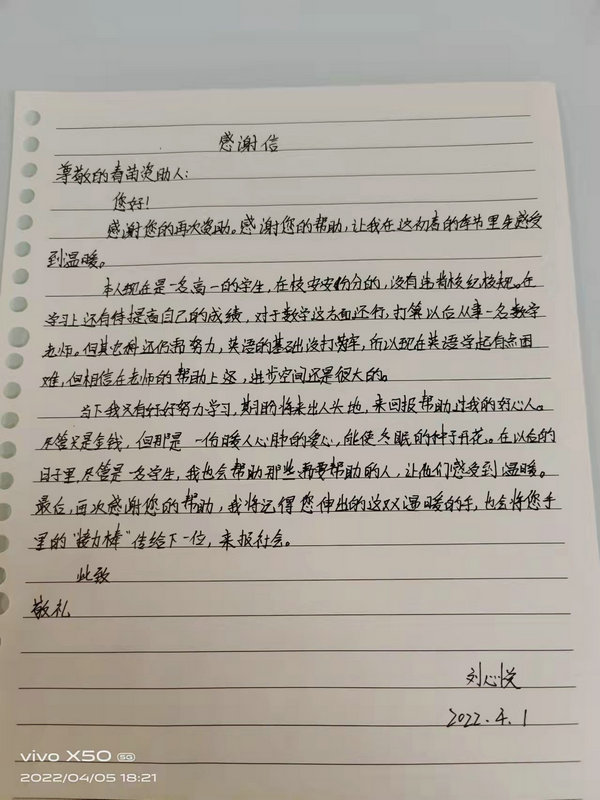 感谢信
尊敬的春苗资助人：
您好！
感谢您的再次资助。感谢您的帮助，让我在这初春的季节里先感受
到温暖。
本人现在是一名高一的学生，在校安安份分的，没有违背校纪校规。在
学习上还有待提高自己的成绩，对于数学这方面还行，打算以后从事一名数学
老师。但其它科还仍需努力，英语的基础没打劳牢，所以现在英语学起有点困
难，但相信在老师的帮助上还，进步空间还是很大的。
当下我只有好好努力学习，期盼将来出人头地，来回报帮助过我的好心人。
尽管只是金钱，但那是一份暖人心肺的爱心，能使冬眠的种子开花。在以后的
日子里，尽管是一名学生，我也会帮助那些需要帮助的人，让他们感受到温暖。
最后，再次感谢您的帮助，我将记得您伸出的这双温暖的手，也会将您手
里的“接力棒”传给下一位，来报社会。
此致
敬礼
刘心悦
2022.4.1
vivo X50 5G
2022/04/05 18:21